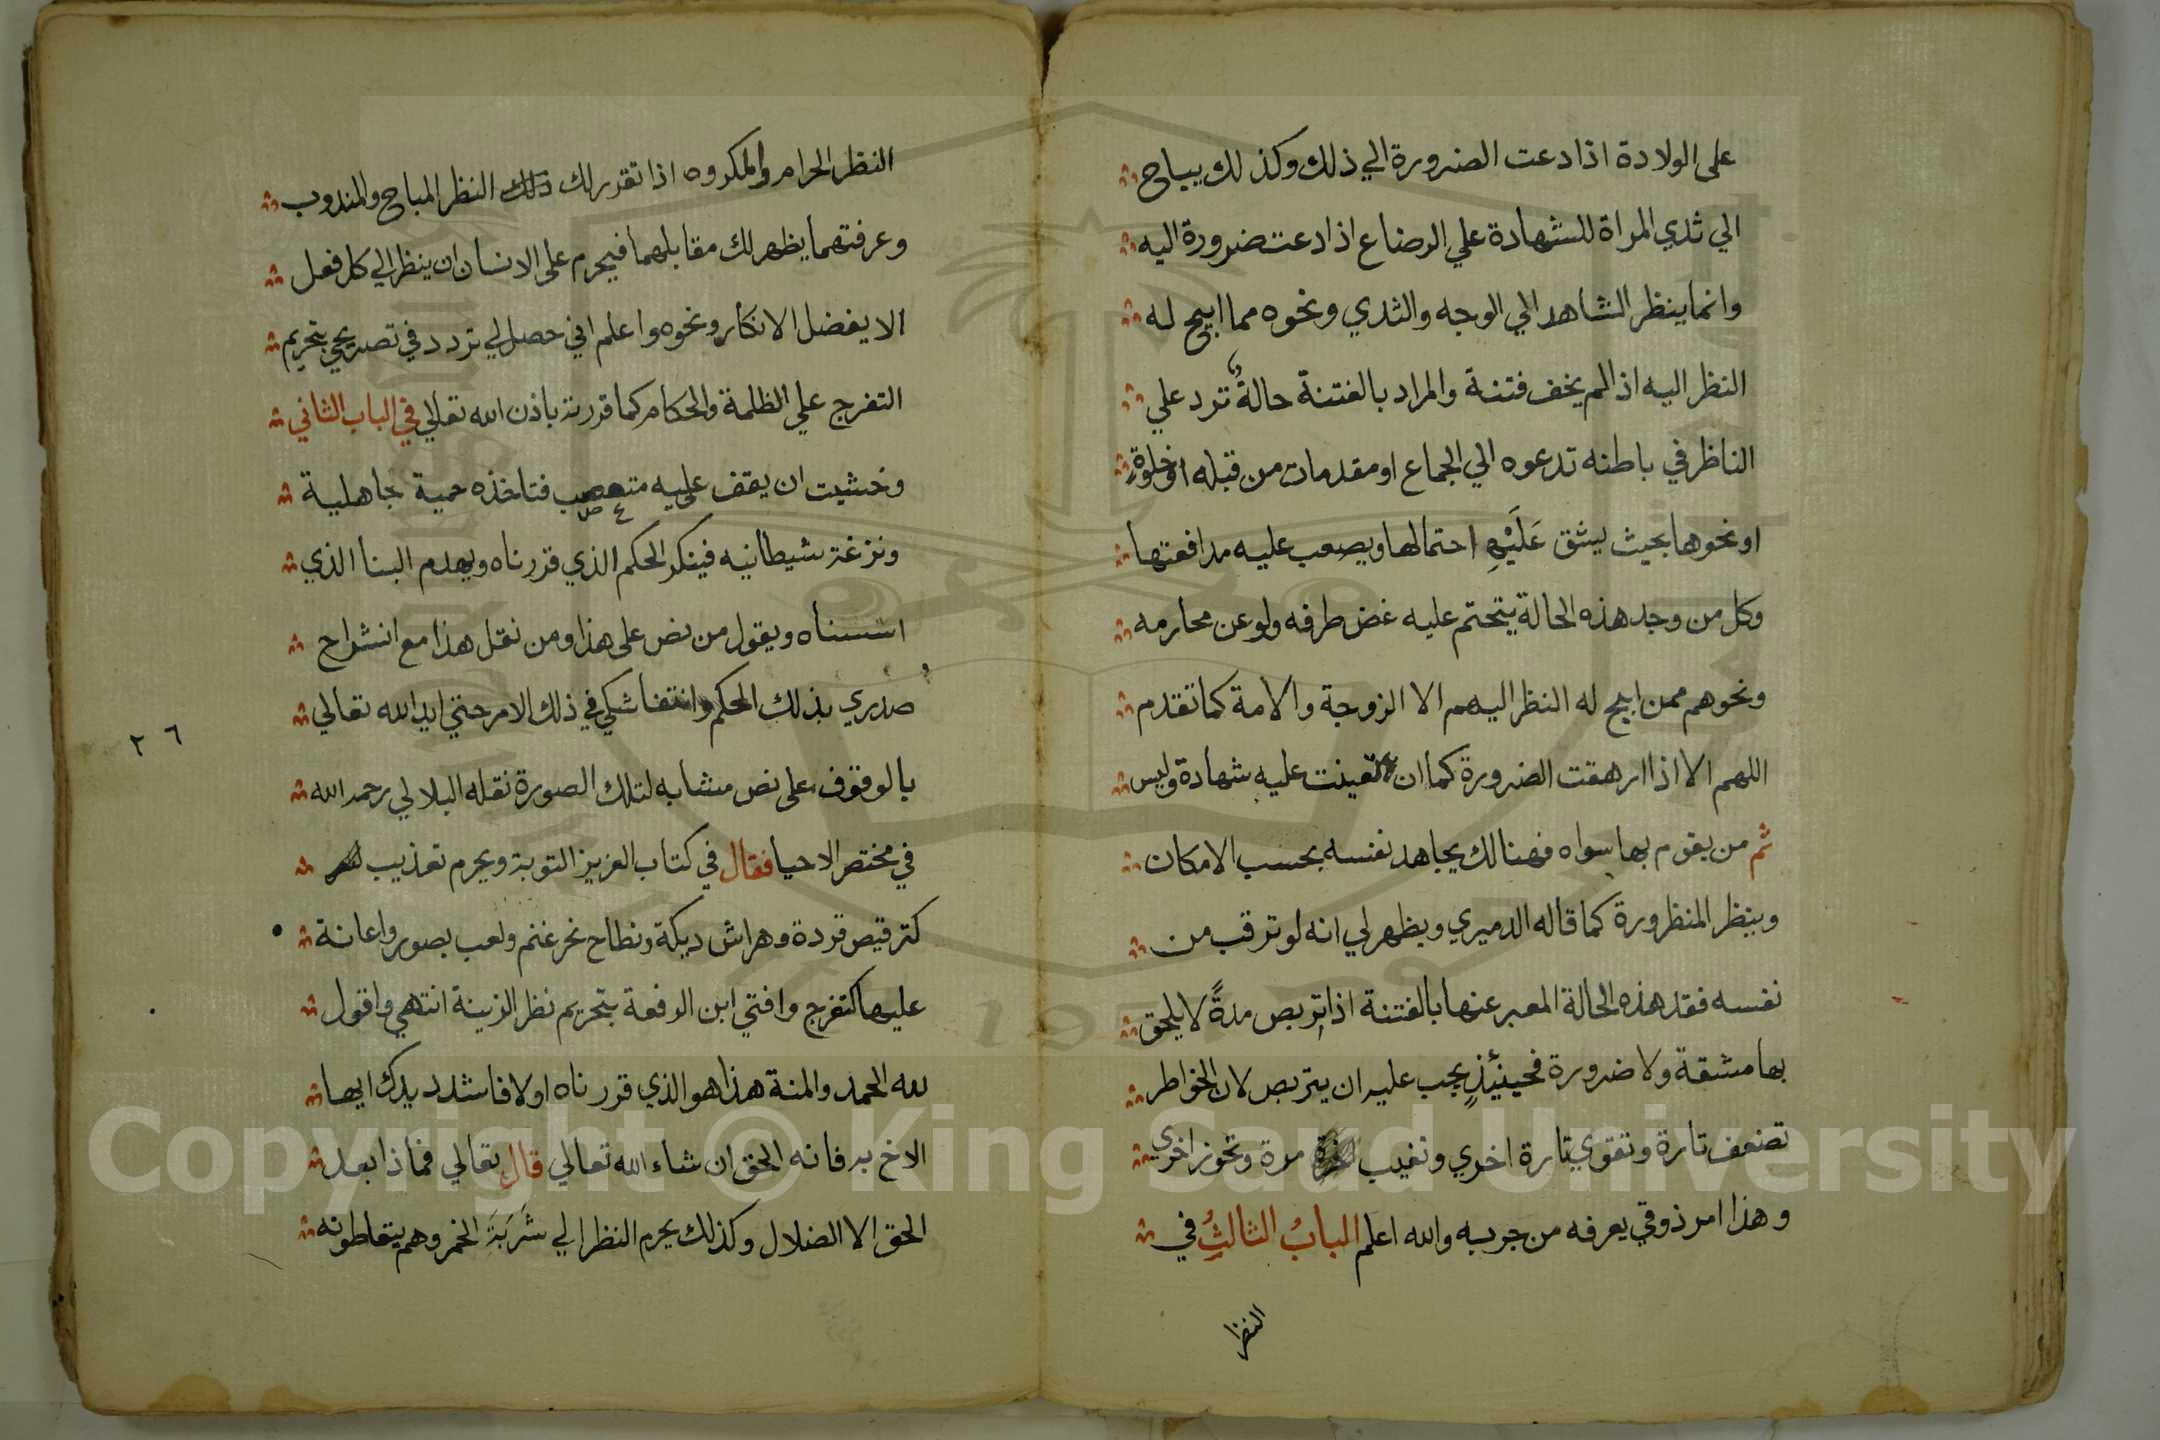 على الولادة اذا دعت الضرورة الي ذلك وكذلك يباح
الي ثدي المراة للشهادة علي الرضاع اذا دعت ضرورة اليه
وانما ينظر الشاهد الي الوجه والثدي ونحوه مما ابيح له
النظر اليه اذا لم يخف فتنة والمراد بالفتنة حالةٌ ترد علي
الناظر في باطنه تدعوه الي الجماع او مقدمات من قبله او خلوةٍ
او نحوها بحيث يشق عَلَيْهِ احتمالها ويصعب عليه مدافعتها
وكل من وجد هذه الحالة يتحتم عليه غض طرفه ولو عن محارمه
ونحوهم ممن ابيح له النظر اليهم الا الزوجة والامة كما تقدم
اللهم الا اذا ارهقت الضرورة كما ان تعينت عليه شهادة وليس
ثم من يقوم بها سواه فهنالك يجاهد نفسه بحسب الامكان
وينظر المنظرورة كما قاله الدميري ويظهر لي انه لو ترقب من
نفسه فقد هذه الحالة المعبر عنها بالفتنة اذا تربص مدةً لا يلحق
بها مشقة ولا ضرورة فحينئذٍ يجب عليه ان يتربص لان الخواطر
تضعف تارة وتقوي تارة اخري وتغيب مرة وتحوز اخري
وهذا امر ذوقي يعرفه من جربه والله اعلم البابُ الثالثُ في
النظر
النظر الحرام والمكروه اذا تقرر لك ذلك النظر المباح والمندوب
وعرفتهما يظهر لك مقابلهما فيحرم على الانسان ان ينظر الي كل فعل
الا يفضل الانكار ونحوه واعلم اني حصل لي تردد في تصريحي بتحريم
التفرج علي الظلمة والحكام كما قررته باذن الله تعالي في الباب الثاني
وخشيت ان يقف عليه متعصب فتاخذه حمية جاهلية
ع ص
ونزغة شيطانيه فينكر الحكم الذي قررناه ويهدم البنا الذي
اسسناه ويقول من نص على هذا ومن نقل هذا مع انشراح
صدري بذلك الحكم وانتفا شكي في ذلك الامر حتي ايد الله تعالي
بالوقوف على نص مشابه لتلك الصورة نقله البلالي رحمه الله
في مختصر الاحيا فقال في كتاب العزيز التوبة ويحرم تعذيب
كترقيص قردة وهراش ديكة ونطاح نحر غنم ولعب بصور واعانة
عليها كتفرج وافتي ابن الرفعة بتحريم نظر الزينة انتهي واقول
لله الحمد والمنة هذا هو الذي قررناه اولا فاشدد يدك ايها
الاخ به فانه الحق ان شاء الله تعالي قال تعالي فماذا بعد
الحق الا الضلال وكذلك يحرم النظر الي شَرَبَةَ الخمر وهم يتعاطونه
٢٦
Copyright © King Saud University